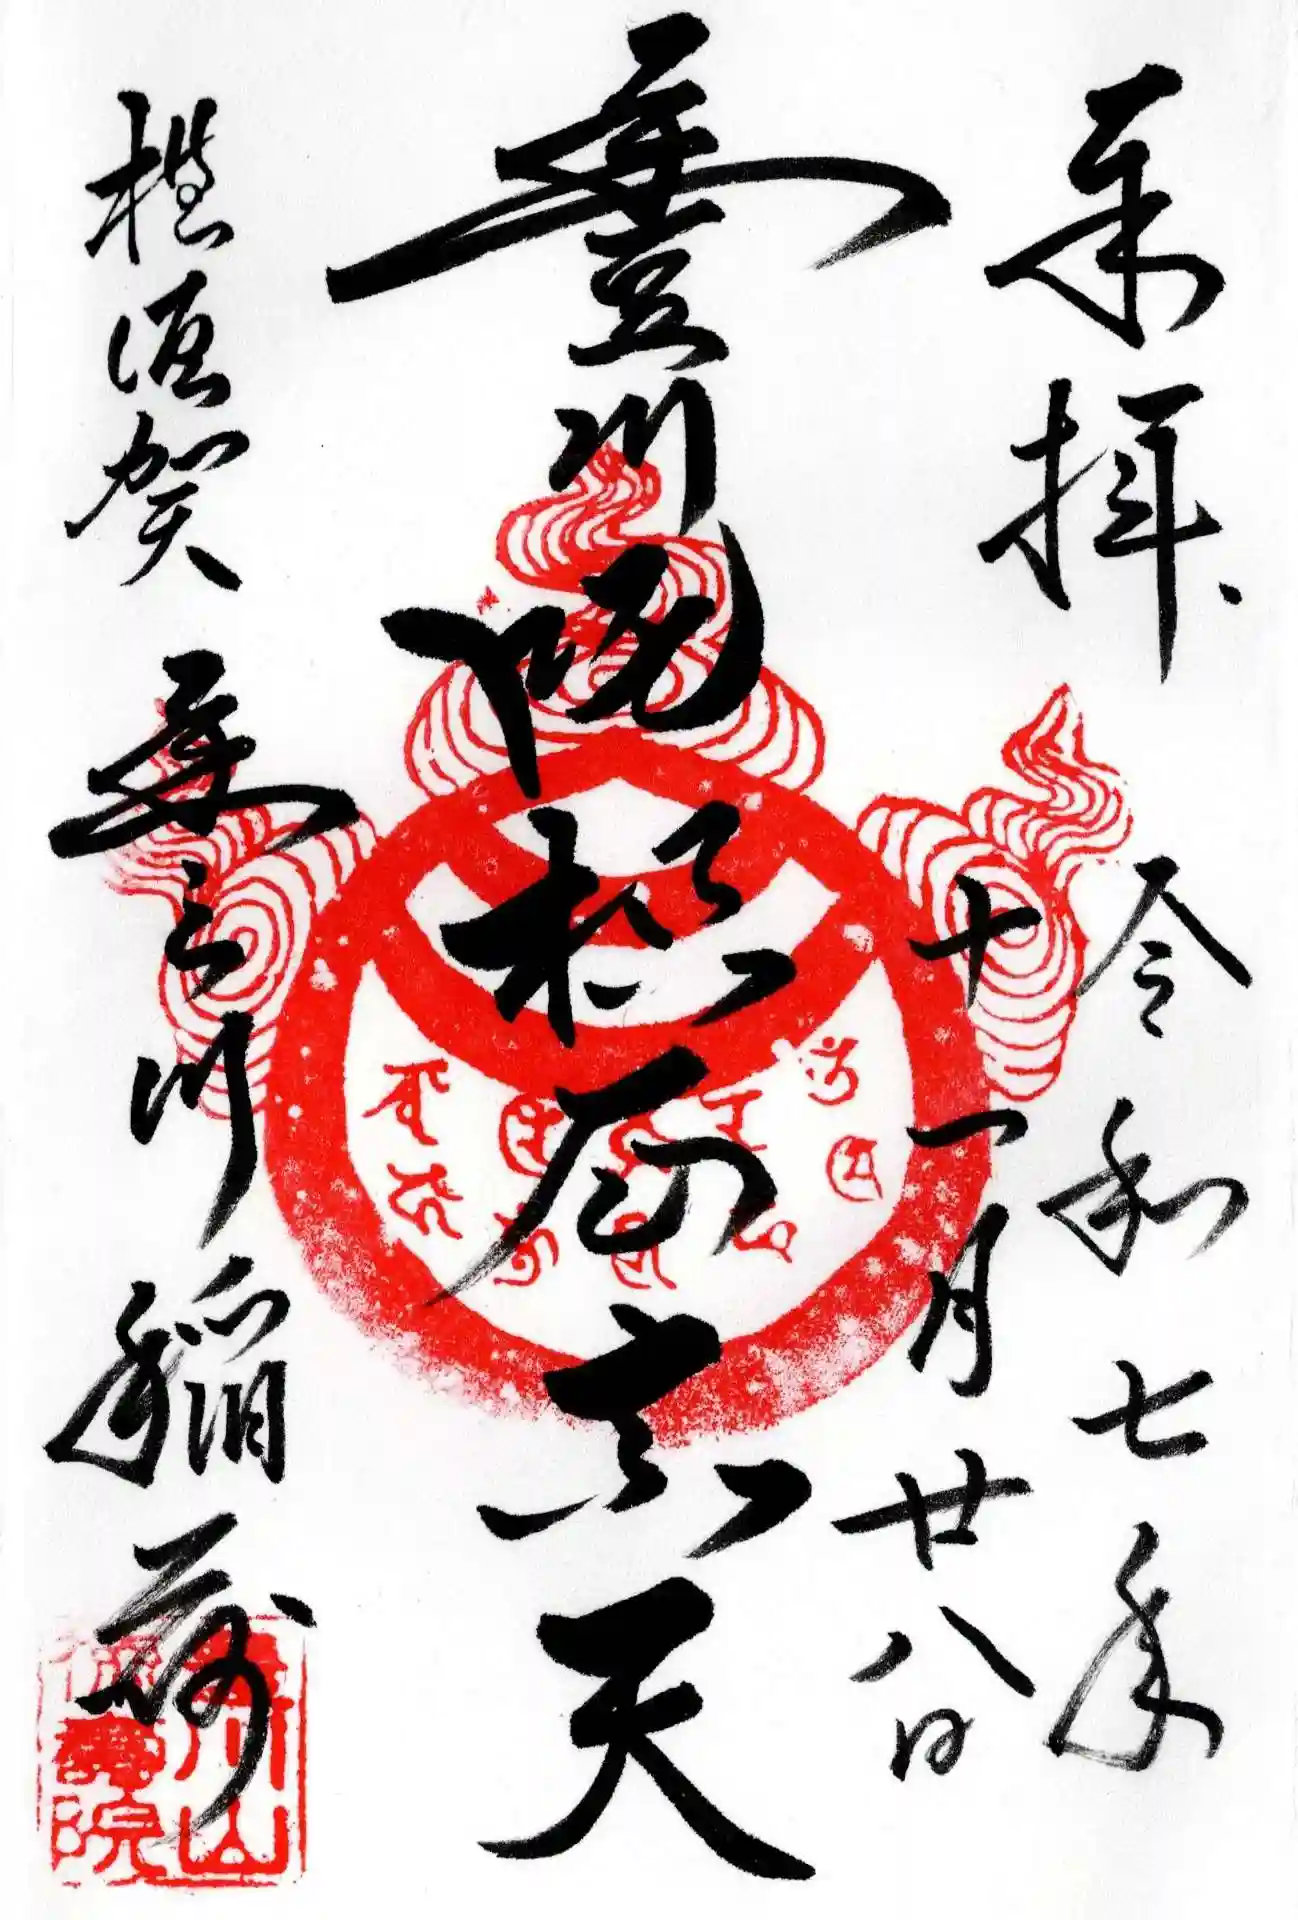 来拝
令和七年
十一月廿八日
豊川吒枳尼真天
横須賀
豊川稲荷
豊川山
徳寿院